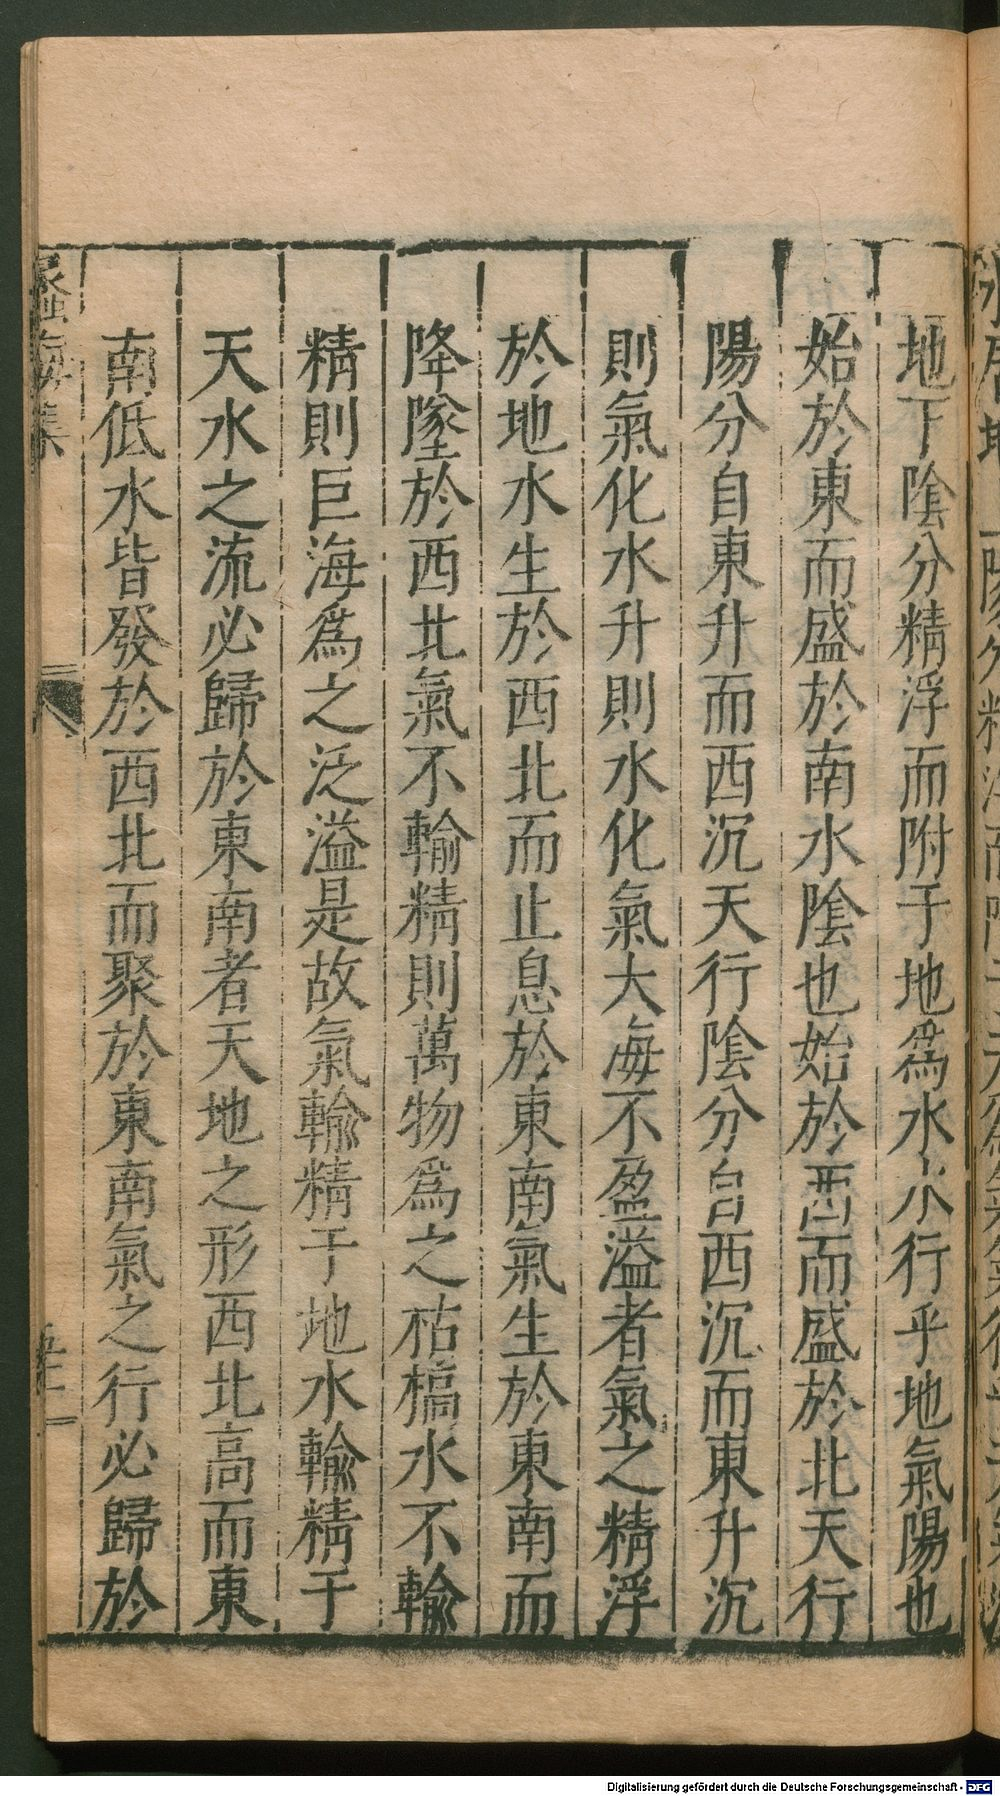 地下陰分精浮而附于地爲水水行乎地氣陽也
始於東而盛於南水陰也始於西而盛於北天行
陽分自東升而西沉天行陰分自西沉而東升沉
則氣化水升則水化氣大海不盈溢者氣之精浮
於地水生於西北而止息於東南氣生於東南而
降墜於西北氣不輸精則萬物爲之枯槁水不輸
精則巨海爲之泛溢是故氣輸精于地水輸精于
天水之流必歸於東南者天地之形西北高而東
南低水皆發於西北而聚於東南氣之行必歸於
海集
Digitalisierung gefördert durch die Deutsche Forschungsgemeinschaft - DFG